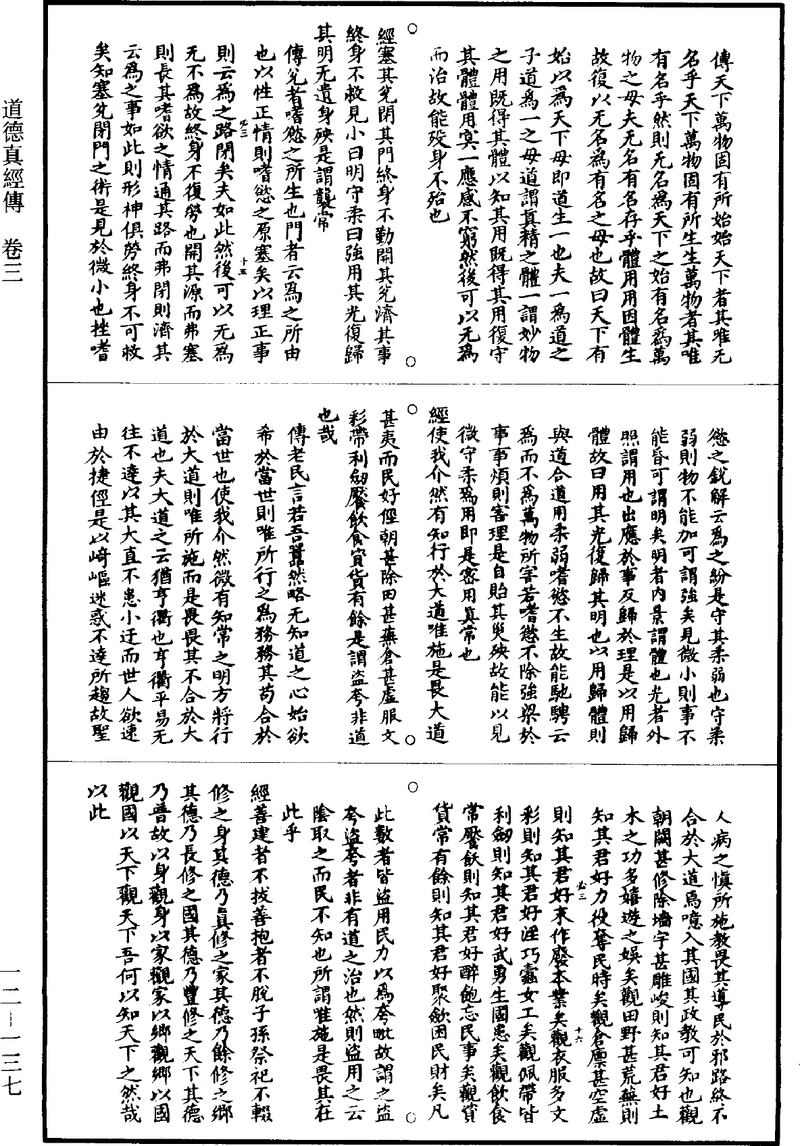 道德真經傳　卷三
傳天下萬物固有所始始天下者其唯无
名乎天下萬物固有所生生萬物者其唯
有名乎然則无名爲天下之始有名爲萬
物之母夫无名有名存乎體用用因體生
故復以无名爲有名之母也故曰天下有
始以爲天下母即道生一也夫一爲道之
子道爲一之母道謂真精之體一謂妙物
之用既得其體以知其用既得其用復守
其體體用冥一應感不窮然後可以无爲
而治故能殁身不殆也
經塞其兌閉其門終身不勤開其兌濟其事
終身不救見小曰明守柔曰強用其光復歸
其明无遺身殃是謂襲常
傳兌者嗜慾之所生也門者云爲之所由
也以性正情則嗜慾之原塞矣以理正事
則云爲之路閉矣夫如此然後可以无爲
无不爲故終身不復勞也開其源而弗塞
則長其嗜欲之情通其路而弗閉則濟其
云爲之事如此則形神俱勞終身不可救
矣知塞兌閉門之術是見於微小也挫嗜
必三
十五
慾之銳解云爲之紛是守其柔弱也守柔
弱則物不能加可謂強矣見微小則事不
能昏可謂明矣明者內景謂體也光者外
照謂用也出應於事反歸於理是以用歸
體故曰用其光復歸其明也以用歸體則
與道合道用柔弱嗜慾不生故能馳騁云
爲而不爲萬物所害若嗜慾不除強梁於
事事煩則害理是自貽其災殃故能以見
微守柔爲用即是密用真常也
經使我介然有知行於大道唯施是畏大道
甚夷而民好徑朝甚除田甚蕪倉甚虛服文
彩帶利劒饜飲食資貨有餘是謂盜夸非道
也哉
傳老氏言若吾蠶然略无知道之心始欲
希於當世則唯所行之爲務務其苟合於
當世也使我介然微有知常之明方將行
於大道則唯所施而是畏畏其不合於大
道也夫大道之云猶亨衢也亨衢平易无
往不達以其大直不患小迂而世人欲速
由於捷徑是以崎嶇迷惑不達所趨故聖
人病之愼所施教畏其導民於邪路終不
合於大道焉噫入其國其政教可知也觀
朝闕甚修除墻宇甚雕峻則知其君好土
木之功多嬉遊之娛矣觀田野甚荒蕪則
知其君好力役奪民時矣觀倉廩甚空虛
則知其君好末作廢本業矣觀衣服多文
彩則知其君好淫巧蠹女工矣觀佩帶皆
利劒則知其君好武勇生國患矣觀飲食
常饜飫則知其君好醉飽忘民事矣觀資
貨常有餘則知其君好聚歛困民財矣凡
必三
十六
此數者皆盜用民力以爲夸毗故謂之盜
夸盜夸者非有道之治也然則盜用之云
陰取之而民不知也所謂唯施是畏其在
此乎
經善建者不拔善抱者不脫子孫祭祀不輟
修之身其德乃眞修之家其德乃餘修之鄉
其德乃長修之國其德乃豐修之天下其德
乃普故以身觀身以家觀家以鄉觀鄉以國
觀國以天下觀天下吾何以知天下之然哉
以此
一二—一三七